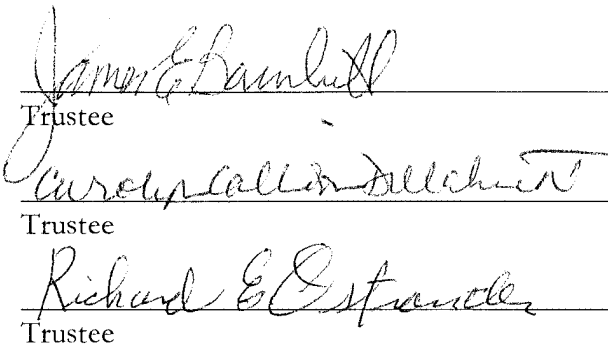 James E Barnhill
Trustee
Carolyn
Trustee
Richard E Ostrander
Trustee